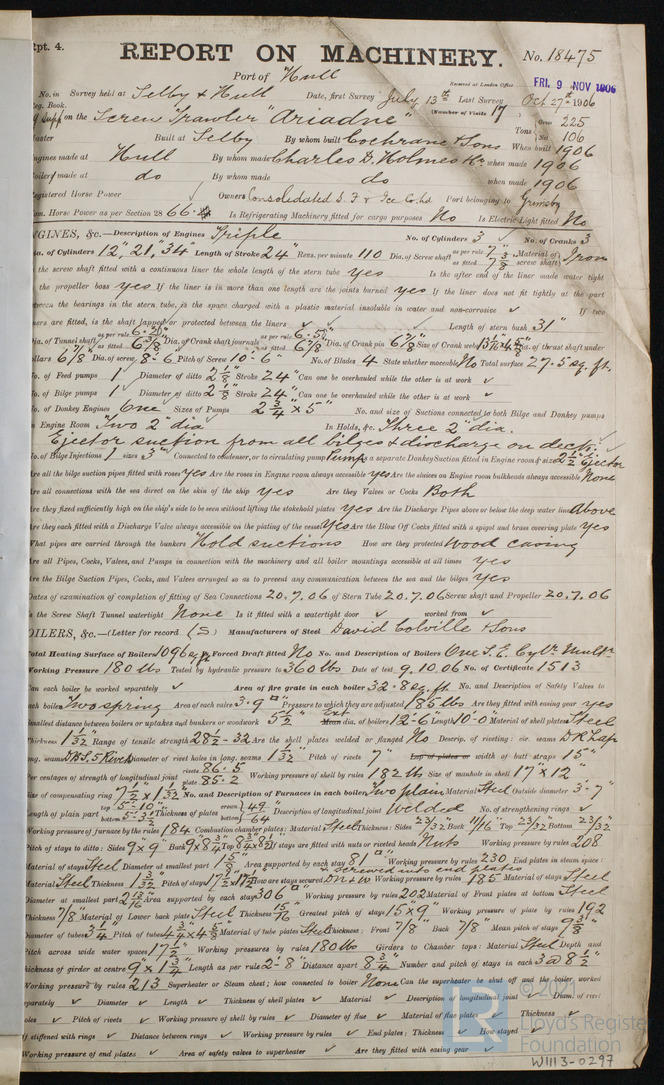 Rpt. 4.
REPORT ON MACHINERY. No. 18475
Port of Hull
Received at London Office FRI. 9 NOV 1906
No. in Survey held at Selby & Hull Date, first Survey July 13th Last Survey Oct 27th 1906
Reg. Book. (Number of Visits 17)
on the Screw Trawler "Ariadne" Tons Gross 225 Net 106
Master Built at Selby By whom built Cochrane & Sons When built 1906
Engines made at Hull By whom made Charles D. Holmes when made 1906
Boilers made at do By whom made do when made 1906
Registered Horse Power Owners Consolidated S. F. & Ice Co. Ltd Port belonging to Grimsby
Nom. Horse Power as per Section 28 66 Is Refrigerating Machinery fitted for cargo purposes No Is Electric Light fitted No
ENGINES, &c.—Description of Engines Triple No. of Cylinders 3 No. of Cranks 3
Dia. of Cylinders 12", 21", 34" Length of Stroke 24" Revs. per minute 110 Dia. of Screw shaft as per rule 7" as fitted 7 3/8 Material of screw shaft Iron
Is the screw shaft fitted with a continuous liner the whole length of the stern tube yes Is the after end of the liner made water tight
in the propeller boss yes If the liner is in more than one length are the joints burned yes If the liner does not fit tightly at the part
between the bearings in the stern tube, is the space charged with a plastic material insoluble in water and non-corrosive ✓ If two
liners are fitted, is the shaft lapped or protected between the liners ✓ Length of stern bush 31"
Dia. of Tunnel shaft as per rule as fitted 6 3/8 Dia. of Crank shaft journals as per rule as fitted 6 7/8 Dia. of Crank pin 6 7/8 Size of Crank webs Dia. of thrust shaft under
collars 6 7/8 Dia. of screw 8-6 Pitch of Screw 10-6" No. of Blades 4 State whether moveable No Total surface 27.5 sq. ft.
No. of Feed pumps 1 Diameter of ditto 2 5/8 Stroke 24" Can one be overhauled while the other is at work ✓
No. of Bilge pumps 1 Diameter of ditto 2 5/8 Stroke 24" Can one be overhauled while the other is at work ✓
No. of Donkey Engines One Sizes of Pumps 2 3/4 x 5" No. and size of Suctions connected to both Bilge and Donkey pumps
In Engine Room Two 2" dia In Holds, &c. Three 2" dia.
Ejector suction from all bilges & discharge on deck
No. of Bilge Injections 1 sizes 3" Connected to condenser, or to circulating pump Pump Is a separate Donkey Suction fitted in Engine room & size 2 1/2" Ejector
Are all the bilge suction pipes fitted with roses yes Are the roses in Engine room always accessible yes Are the sluices on Engine room bulkheads always accessible None
Are all connections with the sea direct on the skin of the ship yes Are they Valves or Cocks Both
Are they fixed sufficiently high on the ship's side to be seen without lifting the stokehold plates yes Are the Discharge Pipes above or below the deep water line Above
Are they each fitted with a Discharge Valve always accessible on the plating of the vessel yes Are the Blow Off Cocks fitted with a spigot and brass covering plate yes
What pipes are carried through the bunkers Hold suctions How are they protected Wood casing
Are all Pipes, Cocks, Valves, and Pumps in connection with the machinery and all boiler mountings accessible at all times yes
Are the Bilge Suction Pipes, Cocks, and Valves arranged so as to prevent any communication between the sea and the bilges yes
Dates of examination of completion of fitting of Sea Connections 20.7.06 of Stern Tube 20.7.06 Screw shaft and Propeller 20.7.06
Is the Screw Shaft Tunnel watertight None Is it fitted with a watertight door ✓ worked from ✓
BOILERS, &c.—(Letter for record (S)) Manufacturers of Steel David Colville & Sons
Total Heating Surface of Boilers 1096 sq. ft Is Forced Draft fitted No No. and Description of Boilers One S. E. Cylr. Multr.
Working Pressure 180 lbs Tested by hydraulic pressure to 360 lbs Date of test 9.10.06 No. of Certificate 1513
Can each boiler be worked separately ✓ Area of fire grate in each boiler 32.8 sq. ft. No. and Description of Safety Valves to
each boiler Two spring Area of each valve 3.9 □" Pressure to which they are adjusted 185 lbs Are they fitted with easing gear yes
Smallest distance between boilers or uptakes and bunkers or woodwork 5 1/2" Mean dia. of boilers 12-6 Length 10-0 Material of shell plates Steel
Thickness 1 1/32 Range of tensile strength 28 1/2-32 Are the shell plates welded or flanged No Descrip. of riveting: cir. seams D R Lap
long. seams D.B.S. 5 Rivets Diameter of rivet holes in long. seams 1 1/32 Pitch of rivets 7" Lap of plates or width of butt straps 15"
Per centages of strength of longitudinal joint rivets 86.5 plate 85.2 Working pressure of shell by rules 182 lbs Size of manhole in shell 17 x 12"
Size of compensating ring 7 1/2 x 1 1/32 No. and Description of Furnaces in each boiler Two plain Material Steel Outside diameter 3-7"
Length of plain part top 5-10" bottom Thickness of plates crown 49/64 bottom Description of longitudinal joint Welded No. of strengthening rings ✓
Working pressure of furnace by the rules 184 Combustion chamber plates: Material Steel Thickness: Sides 23/32 Back 11/16 Top 23/32 Bottom 23/32
Pitch of stays to ditto: Sides 9x9" Back 9x8 3/4" Top If stays are fitted with nuts or riveted heads Nuts Working pressure by rules 208
Material of stays Steel Diameter at smallest part 1 5/8 Area supported by each stay 81 □" Working pressure by rules 230 End plates in steam space:
Material Steel Thickness 1 3/32 Pitch of stays 17 1/2 x 17 1/2 How are stays secured screwed nuts end plates D N & W Working pressure by rules 185 Material of stays Steel
Diameter at smallest part Area supported by each stay 306 □" Working pressure by rules 202 Material of Front plates at bottom Steel
Thickness 7/8 Material of Lower back plate Steel Thickness 15/16 Greatest pitch of stays 15 x 9" Working pressure of plate by rules 192
Diameter of tubes 3 1/4 Pitch of tubes 4 3/4 x 4 5/8 Material of tube plates Steel Thickness: Front 7/8" Back 7/8" Mean pitch of stays
Pitch across wide water spaces 17 1/2" Working pressures by rules 180 lbs Girders to Chamber tops: Material Steel Depth and
thickness of girder at centre 9" x 1 3/4 Length as per rule 2-8" Distance apart 8 3/4 Number and pitch of stays in each 3 @ 8 1/2"
Working pressure by rules 213 Superheater or Steam chest; how connected to boiler None Can the superheater be shut off and the boiler worked
separately ✓ Diameter ✓ Length ✓ Thickness of shell plates ✓ Material ✓ Description of longitudinal joint ✓ Diam. of rivet
holes ✓ Pitch of rivets ✓ Working pressure of shell by rules ✓ Diameter of flue ✓ Material of flue plates ✓ Thickness ✓
If stiffened with rings ✓ Distance between rings ✓ Working pressure by rules ✓ End plates: Thickness ✓ How stayed ✓
Working pressure of end plates ✓ Area of safety valves to superheater ✓ Are they fitted with easing gear ✓
LR
© 2021
Lloyd's Register
Foundation
W1113-0297